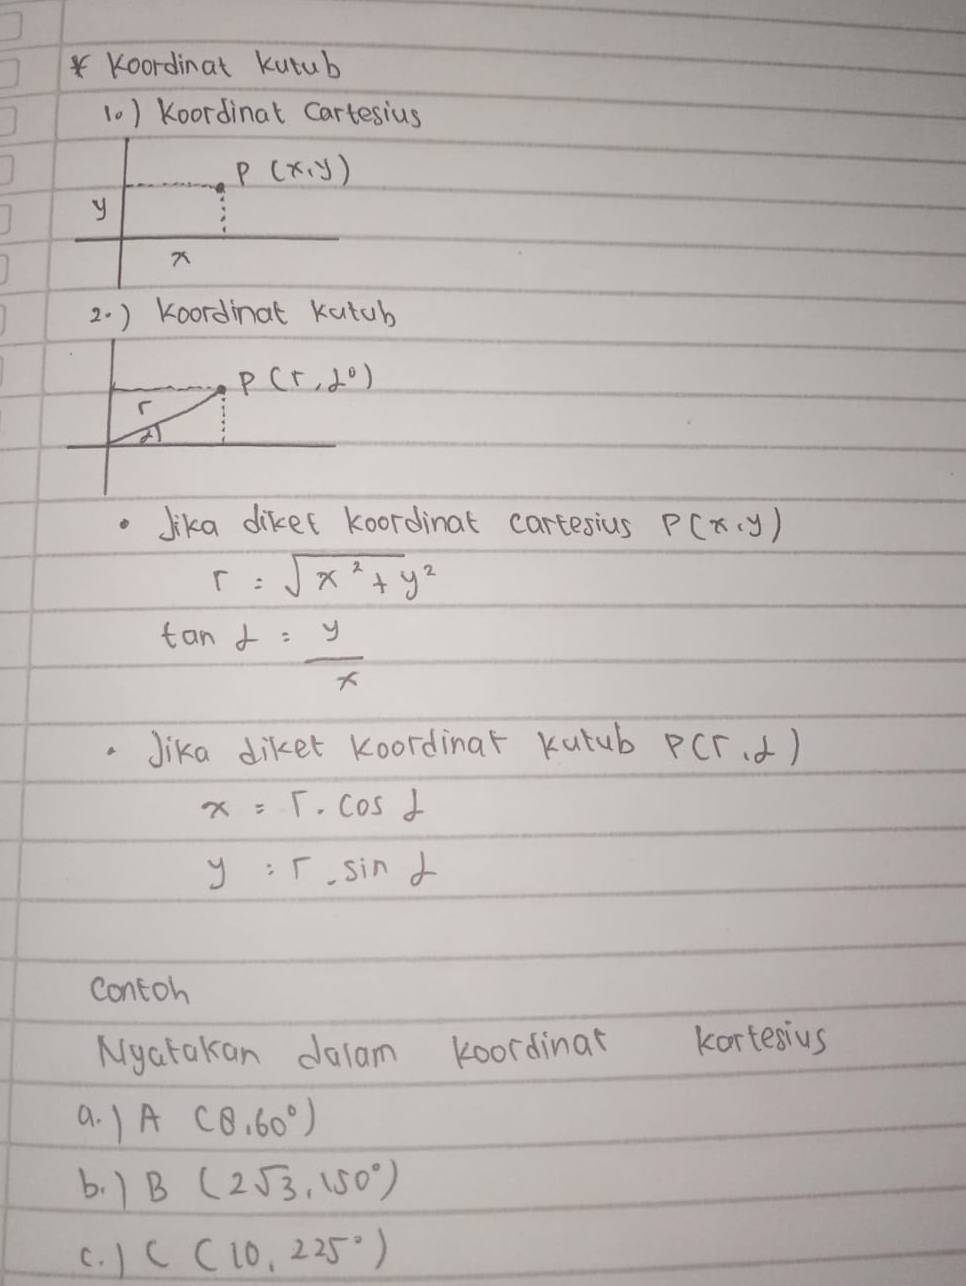 * Koordinat kutub
1.) Koordinat Cartesius
P (x,y)
y
x
2.) Koordinat kutub
P (r, α°)
r
α
• Jika diket koordinat cartesius P(x,y)
r = √x² + y²
tan α = y/x
• Jika diket koordinat kutub P(r,α)
x = r. cos α
y = r. sin α
Contoh
Nyatakan dalam koordinat kartesius
a.) A (8,60°)
b.) B (2√3, 150°)
c.) C (10, 225°)